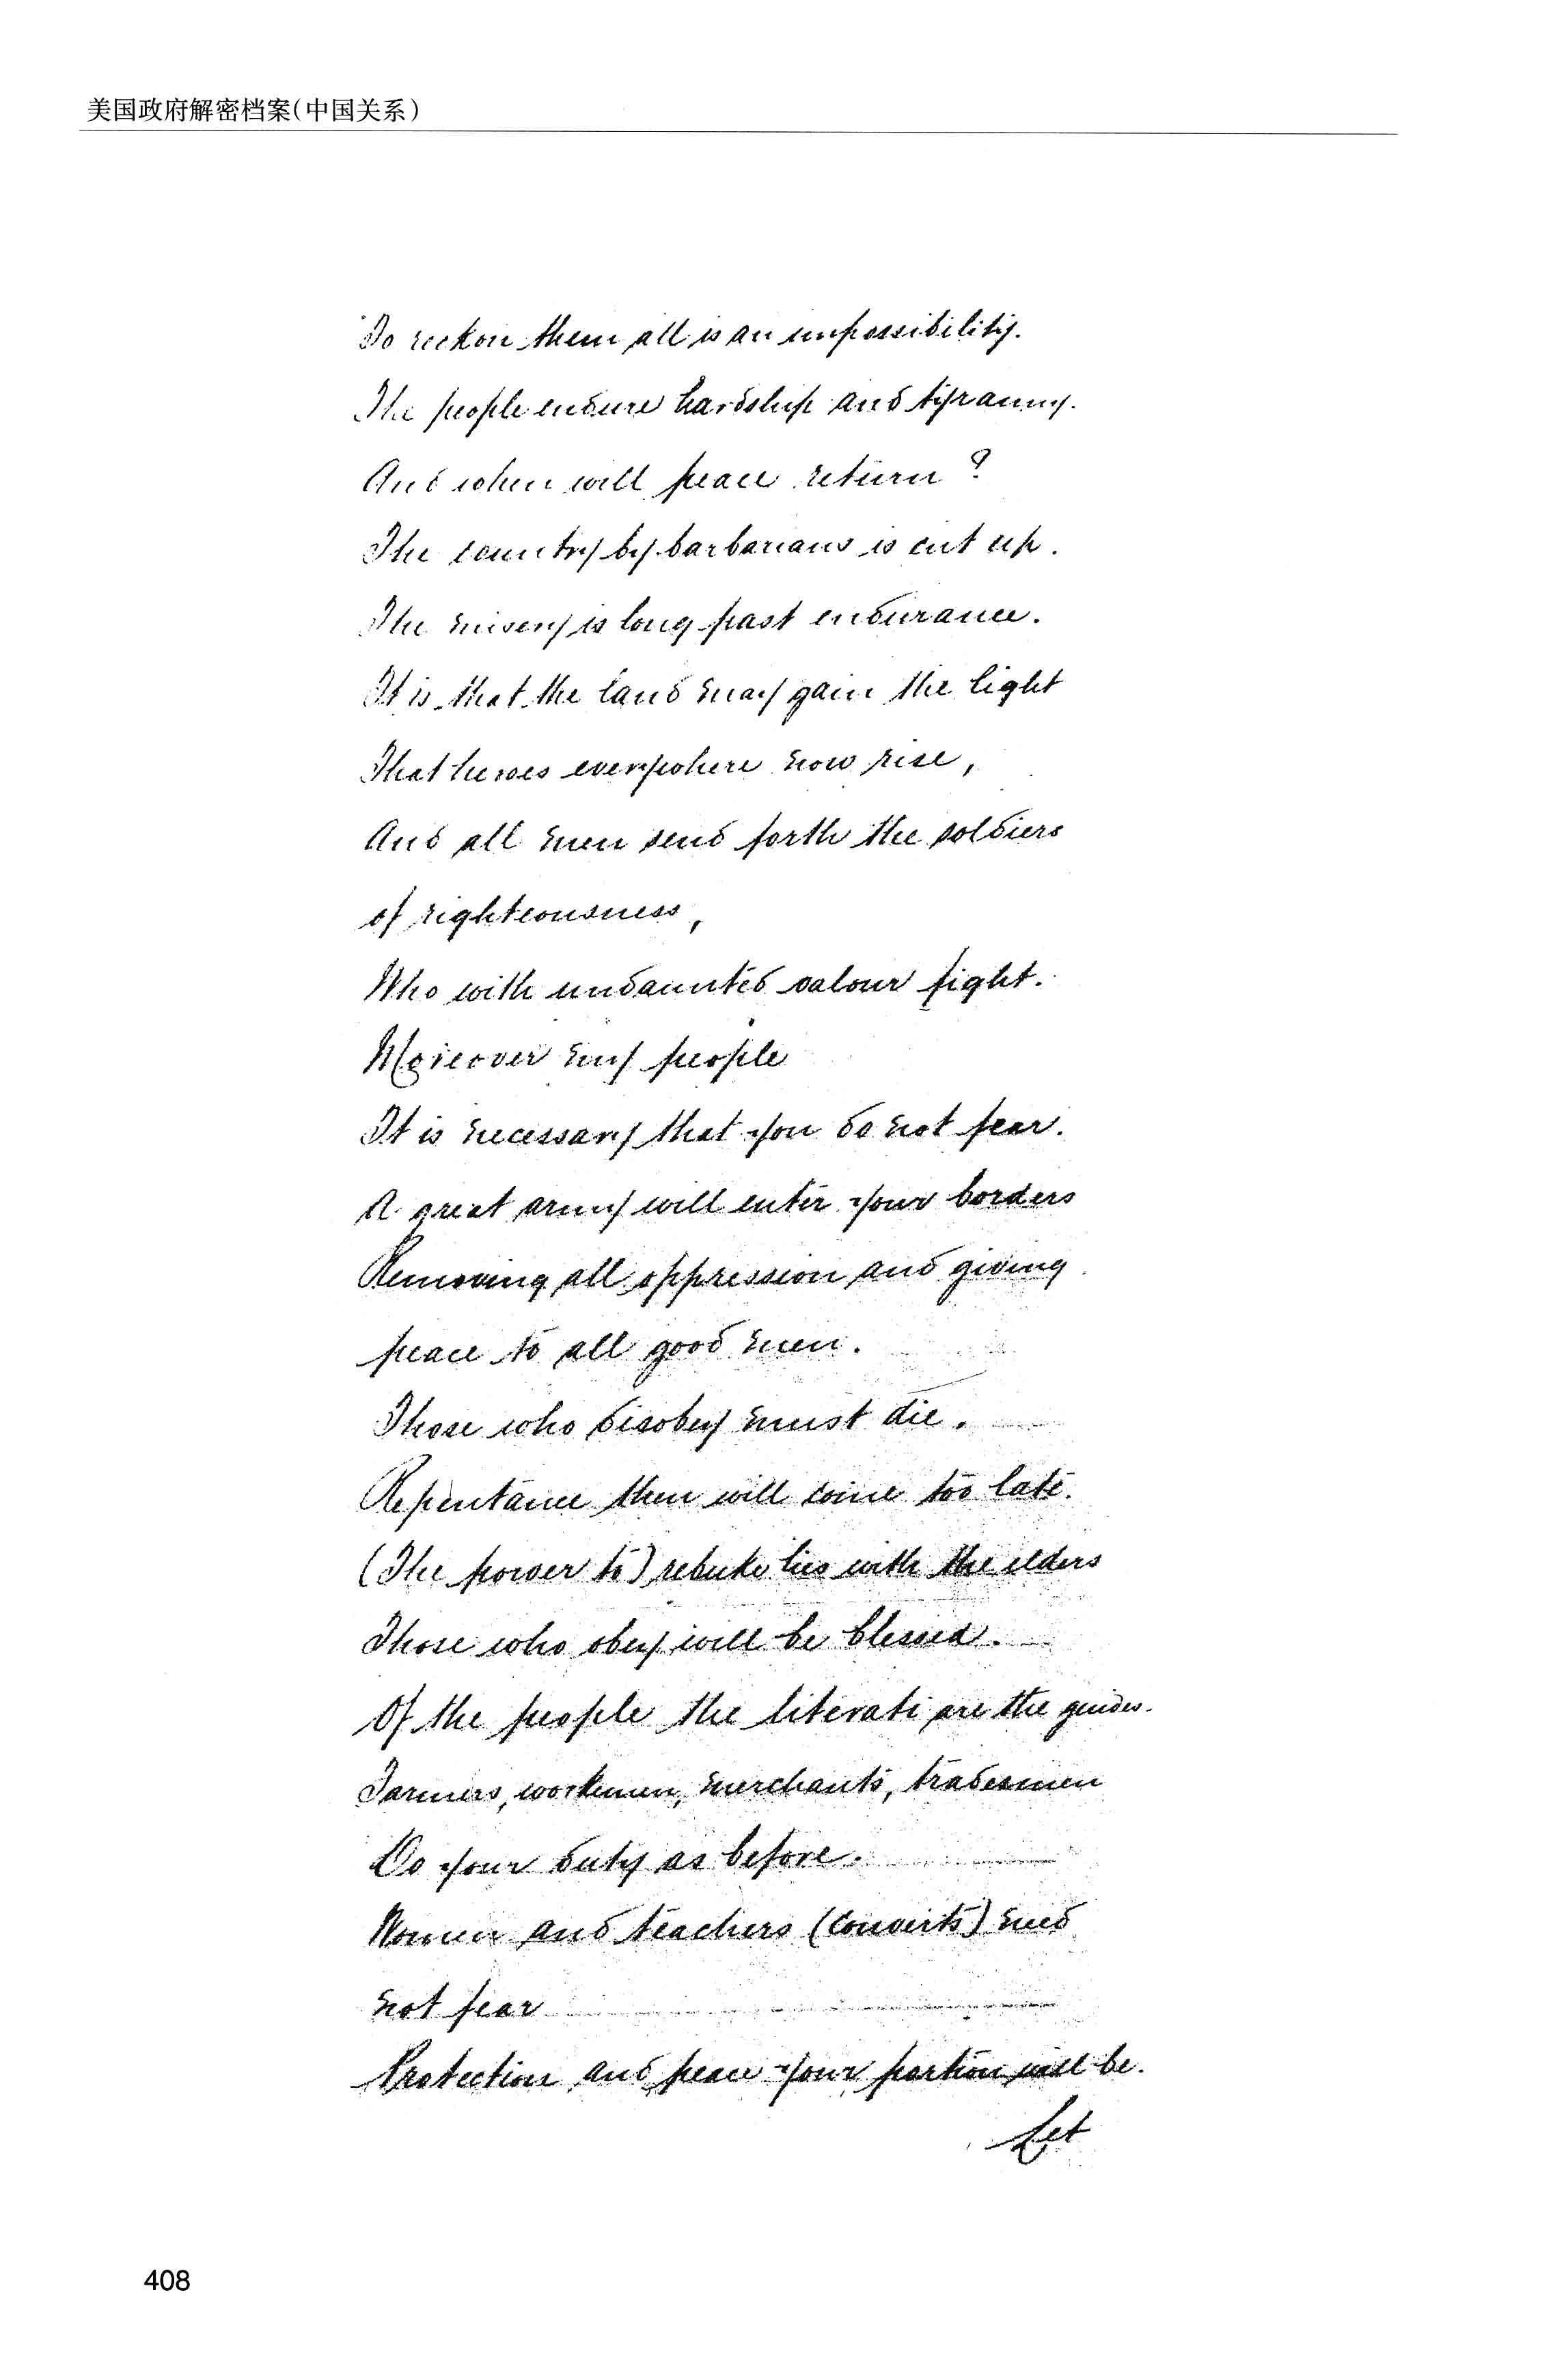 美国政府解密档案(中国关系)
To reckon them all is an impossibility.
The people endure hardship and tyranny.
And when will peace return?
The country by barbarians is cut up.
The misery is long past endurance.
It is that the land may gain the light
That heroes everywhere now rise,
And all men send forth the soldiers
of righteousness,
Who with undaunted valour fight.
Moreover my people
It is necessary that you do not fear.
A great army will enter your borders
Removing all oppression and giving
peace to all good men.
Those who disobey must die.
Repentance then will come too late.
(The power to) rebuke lies with the elders
Those who obey will be blessed.
Of the people the literati are the guides.
Farmers, workmen, merchants, tradesmen
Do your duty as before.
Women and teachers (converts) need
not fear
Protection and peace your portion will be.
Let
408